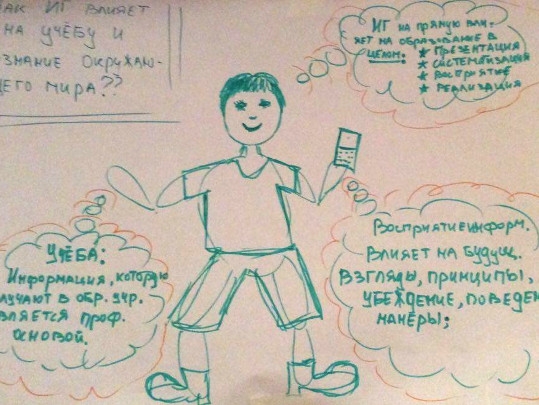 КАК ИГ ВЛИЯЕТ
НА УЧЁБУ И
ЗНАНИЕ ОКРУЖАЮ-
ЩЕГО МИРА??
ИГ НА ПРЯМУЮ ВЛИ-
ЯЕТ НА ОБРАЗОВАНИЕ В
ЦЕЛОМ:
★ ПРЕЗЕНТАЦИЯ
★ СИСТЕМАТИЗАЦИЯ
★ ВОСПРИЯТИЕ
★ РЕАЛИЗАЦИЯ
УЧЁБА:
ИНФОРМАЦИЯ, КОТОРУЮ
ПОЛУЧАЮТ В ОБР. УЧР.
ЯВЛЯЕТСЯ ПРОФ.
ОСНОВОЙ.
ВОСПРИЯТИЕ ИНФОРМ.
ВЛИЯЕТ НА БУДУЩ.
ВЗГЛЯДЫ, ПРИНЦИПЫ,
УБЕЖДЕНИЕ, ПОВЕДЕН
МАНЕРЫ;